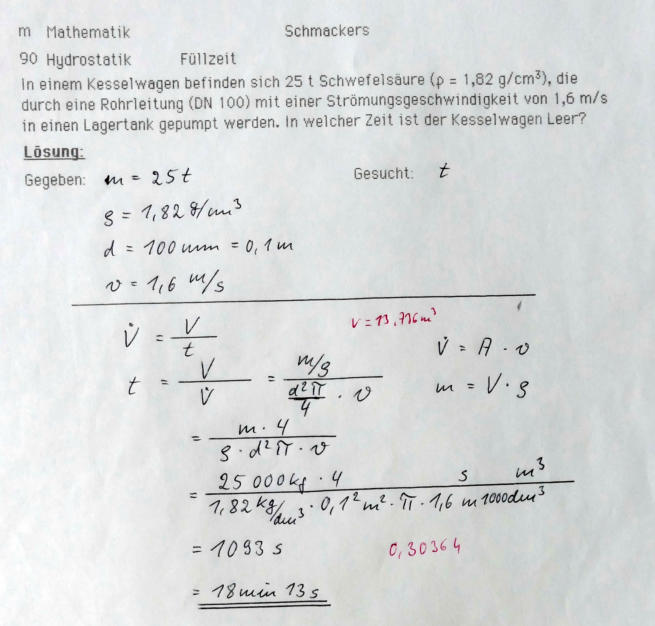 m Mathematik Schmackers
90 Hydrostatik Füllzeit
In einem Kesselwagen befinden sich 25 t Schwefelsäure (ρ = 1,82 g/cm³), die
durch eine Rohrleitung (DN 100) mit einer Strömungsgeschwindigkeit von 1,6 m/s
in einen Lagertank gepumpt werden. In welcher Zeit ist der Kesselwagen Leer?
Lösung:
Gegeben: m = 25t Gesucht: t
ρ = 1,82 g/cm³
d = 100 mm = 0,1 m
v = 1,6 m/s
V̇ = V/t V = 13,736 m³ V̇ = A · v
t = V/V̇ = (m/ρ)/(d²π/4 · v) m = V · ρ
= (m · 4)/(ρ · d²π · v)
= (25 000 kg · 4 s m³)/(1,82 kg/dm³ · 0,1² m² · π · 1,6 m 1000dm³)
= 1093 s 0,30364
= 18 min 13 s